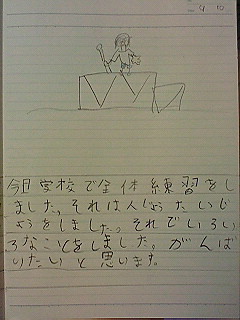 4 10
今日学校で全休練習をし
ました。それは人じょうたいじ
ようをしました。それでいろい
ろなことをしました。がんば
りたいと思います。